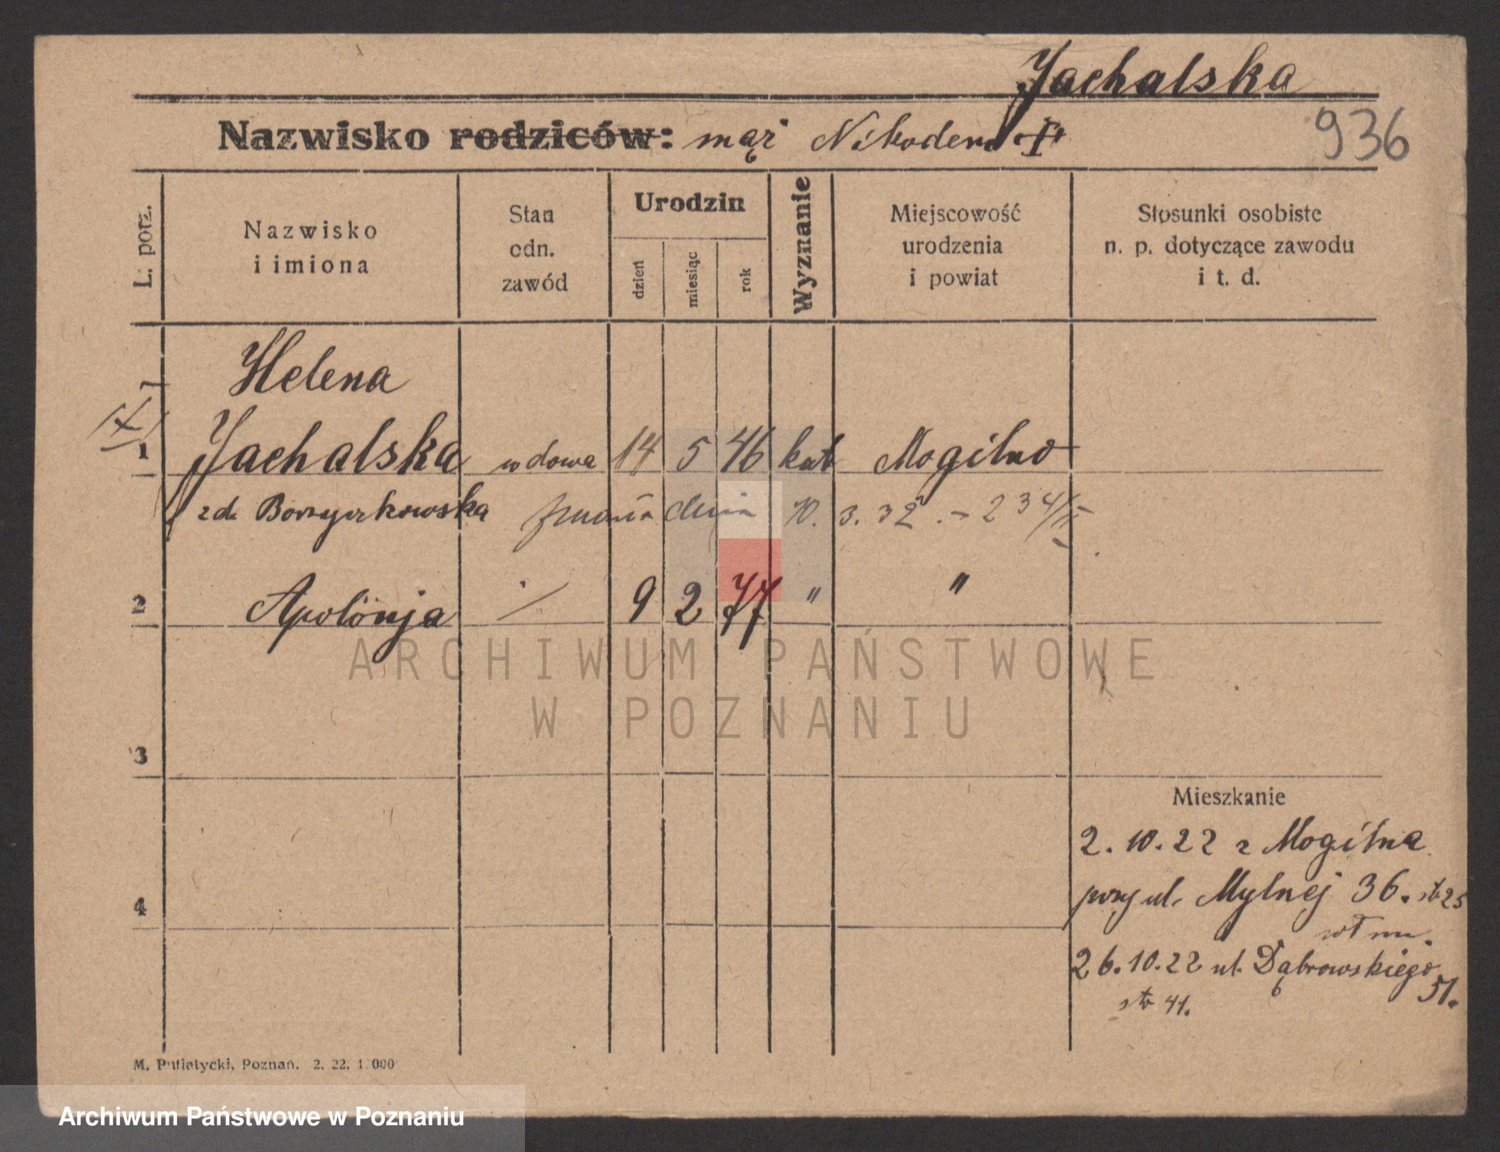 Jachalska
Nazwisko rodziców: mąż Nikodem †
936
L. porz.
Nazwisko
i imiona
Stan
odn.
zawód
Urodzin
dzień
miesiąc
rok
Wyznanie
Miejscowość
urodzenia
i powiat
Stosunki osobiste
n. p. dotyczące zawodu
i t. d.
Helena
1 Jachalska wdowa 14 5 46 kat Mogilno
zd. zmarła dnia 10. 3. 32. - 234/
2 Apolonja / 9 2 77 " "
ARCHIWUM PAŃSTWOWE
W POZNANIU
3
4
Mieszkanie
2. 10. 22 z Mogilna
przy ul. Mylnej 36. str 25
26. 10. 22 ul. Dąbrowskiego
51.
str 41.
M. Putiatycki, Poznań. 2. 22. 1.000
Archiwum Państwowe w Poznaniu